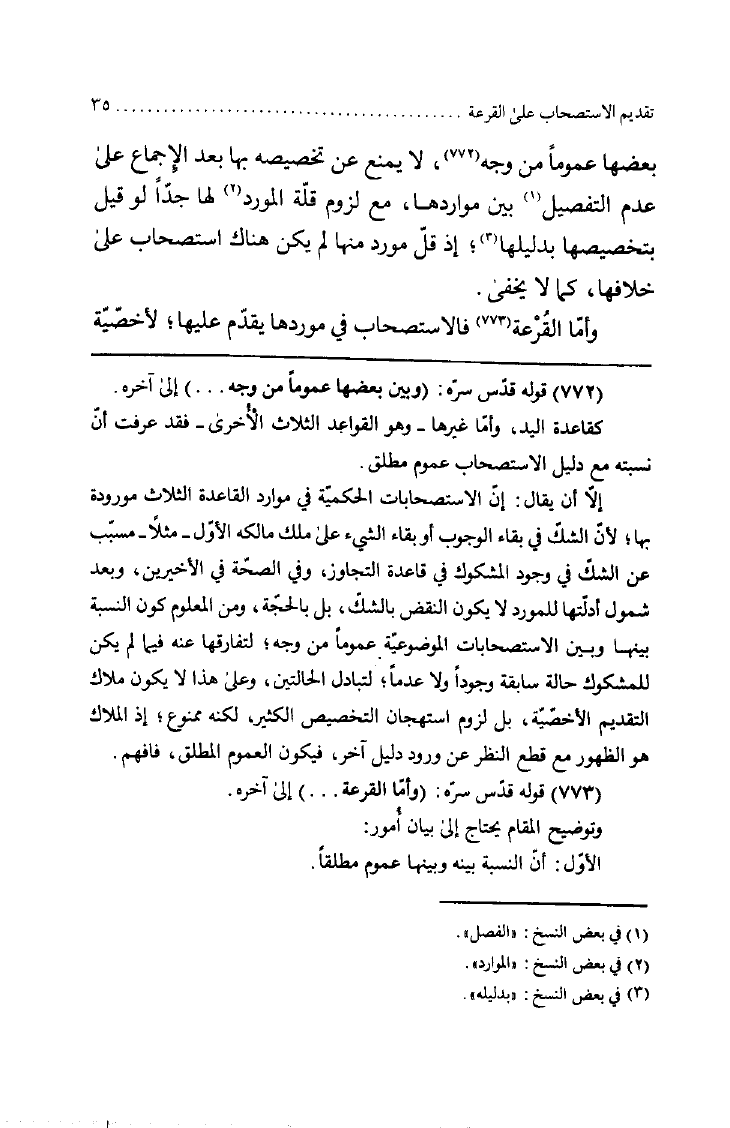 تقديم الاستصحاب علىٰ القرعة ........................................... ٣٥
بعضها عموماً من وجه(٧٧٢)، لا يمنع عن تخصيصه بها بعد الإجماع علىٰ
عدم التفصيل(١) بين مواردها، مع لزوم قلّة المورد(٢) لها جدّاً لو قيل
بتخصيصها بدليلها(٣)؛ إذ قلّ مورد منها لم يكن هناك استصحاب علىٰ
خلافها، كما لا يخفىٰ.
وأمّا القُرْعة(٧٧٣) فالاستصحاب في موردها يقدّم عليها؛ لأخصّيّة
(٧٧٢) قوله قدّس سرّه: (وبين بعضها عموماً من وجه...) إلىٰ آخره.
كقاعدة اليد، وأمّا غيرها ـ وهو القواعد الثلاث الأُخرىٰ ـ فقد عرفت أنّ
نسبته مع دليل الاستصحاب عموم مطلق.
إلّا أن يقال: إنّ الاستصحابات الحكميّة في موارد القاعدة الثلاث مورودة
بها؛ لأنّ الشكّ في بقاء الوجوب أو بقاء الشيء علىٰ ملك مالكه الأوّل ـ مثلاً ـ مسبّب
عن الشكّ في وجود المشكوك في قاعدة التجاوز، وفي الصحّة في الأخيرين، وبعد
شمول أدلّتها للمورد لا يكون النقض بالشكّ، بل بالحجّة، ومن المعلوم كون النسبة
بينها وبين الاستصحابات الموضوعيّة عموماً من وجه؛ لتفارقها عنه فيما لم يكن
للمشكوك حالة سابقة وجوداً ولا عدماً؛ لتبادل الحالتين، وعلىٰ هذا لا يكون ملاك
التقديم الأخصّيّة، بل لزوم استهجان التخصيص الكثير، لكنه ممنوع؛ إذ الملاك
هو الظهور مع قطع النظر عن ورود دليل آخر، فيكون العموم المطلق، فافهم.
(٧٧٣) قوله قدّس سرّه: (وأمّا القرعة...) إلىٰ آخره.
وتوضيح المقام يحتاج إلىٰ بيان أُمور:
الأوّل: أنّ النسبة بينه وبينها عموم مطلقاً.
(١) في بعض النسخ: «الفصل».
(٢) في بعض النسخ: «الموارد».
(٣) في بعض النسخ: «بدليله».